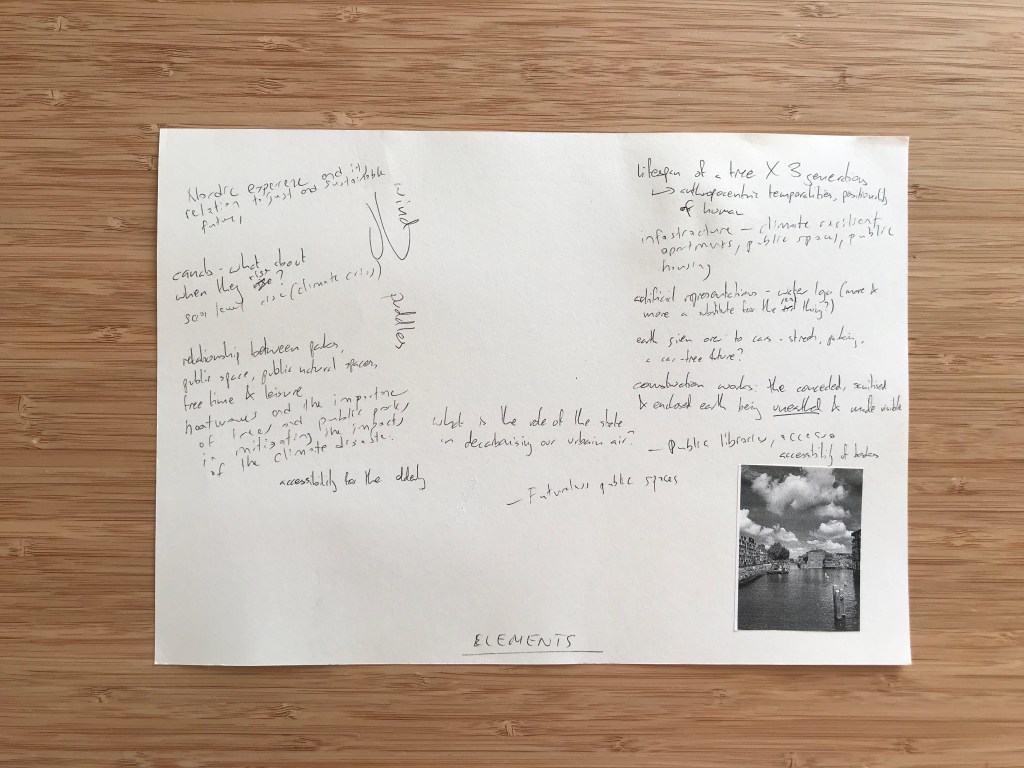 Nordic experience and its
relation to just and sustainable
future,
wind
canals - what about
when they rise?
sea level rise (climate crisis)
puddles
relationship between parks,
public space, public natural spaces,
free time & leisure
heatwaves and the importance
of trees and public parks
in mitigating the impacts
of the climate disaster.
accessibility for the elderly
what is the role of the state
in decarbonising our urban air?
- Futureless public spaces
lifespan of a tree X 3 generations
→ anthropocentric temporalities, positionality
of human
infrastructure - climate resilient
apartments, public spaces, public
housing
artificial representations - water logo (more &
more a substitute for the real thing?)
earth given over to cars - streets, parking,
a car-free future?
construction works: the concealed,
& enclosed earth being unearthed & made visible
- Public libraries, access
accessibility of
ELEMENTS